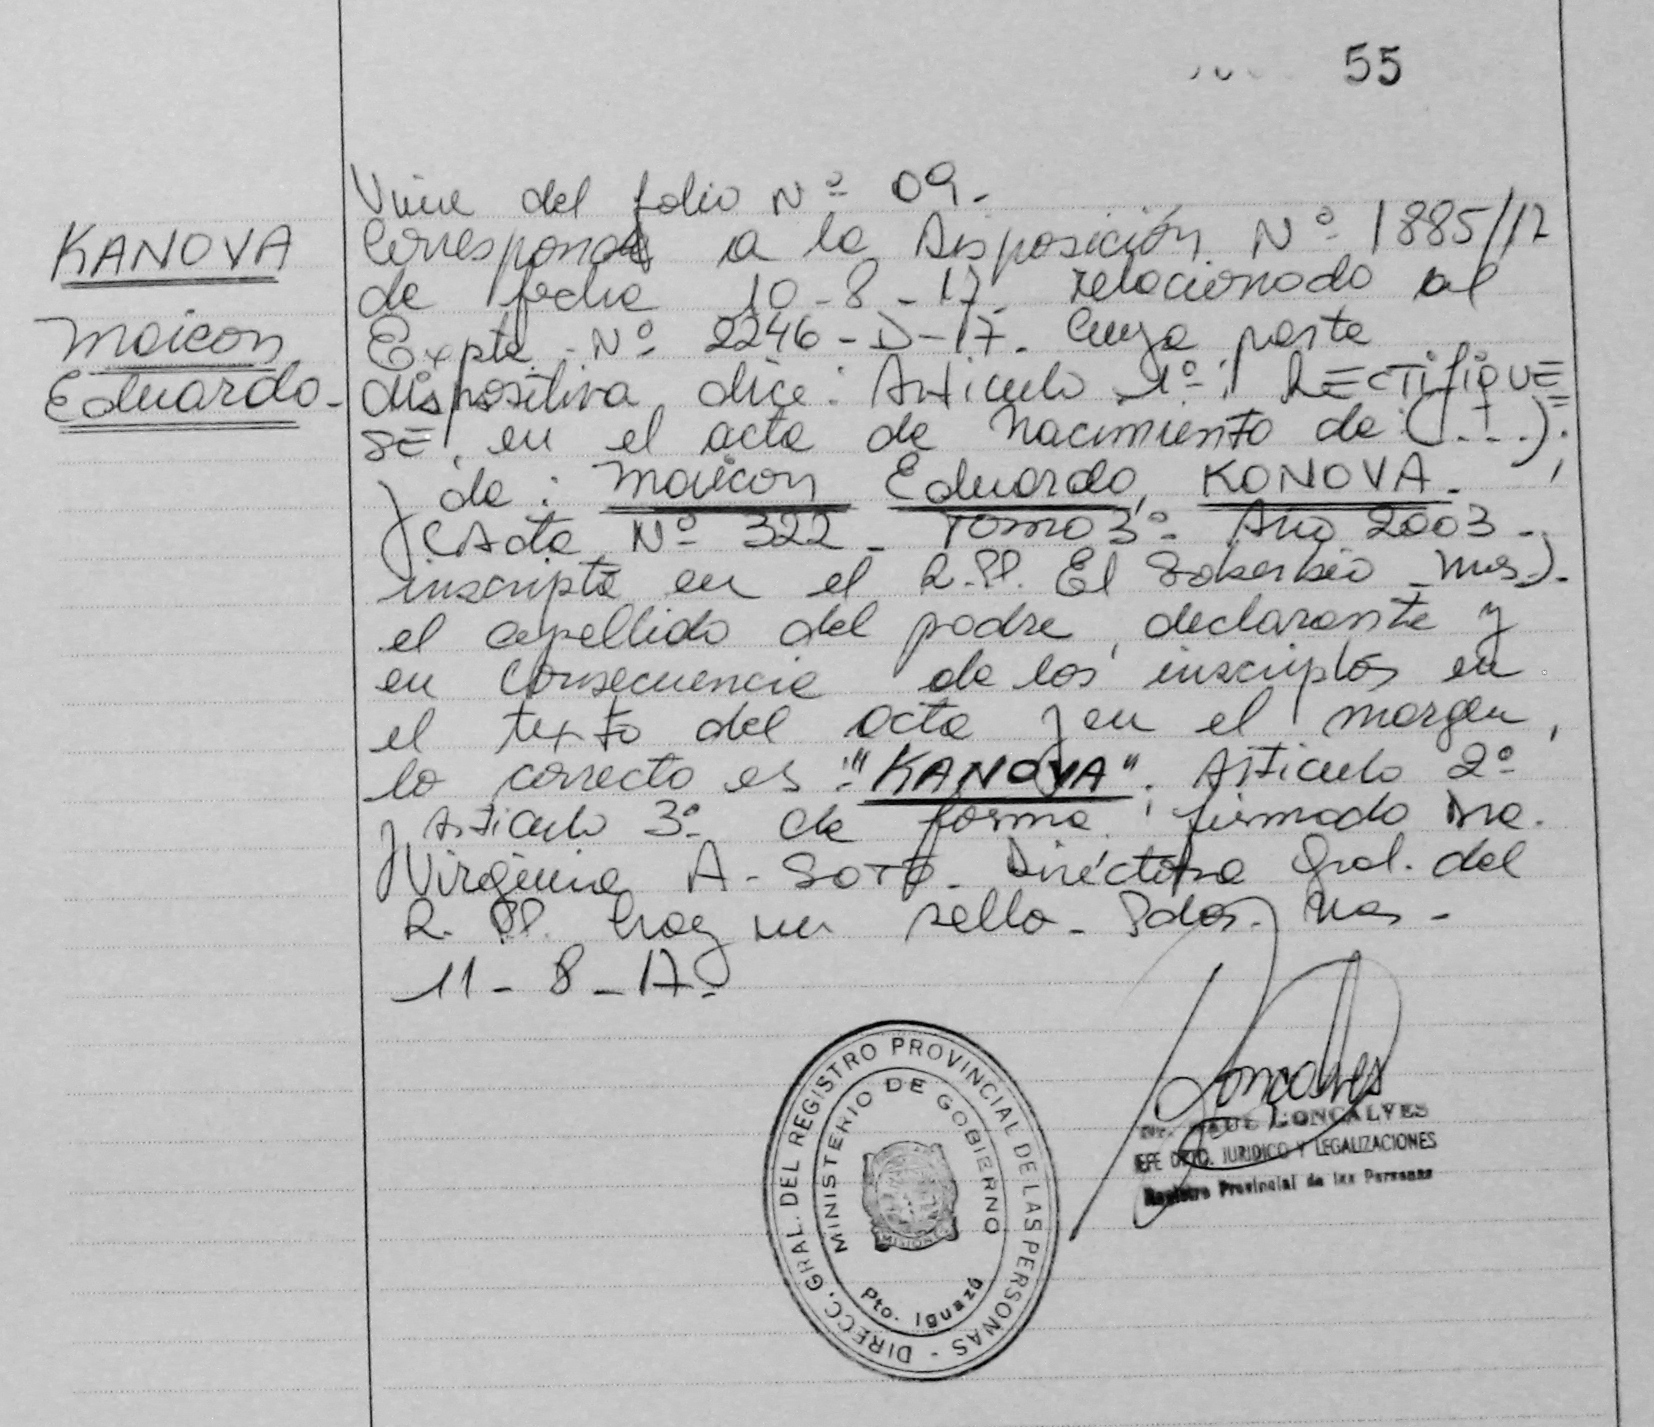 55
KANOVA
Maicon
Eduardo-
Viene del folio Nº 09-
Corresponde a la Disposición Nº 1885/17
de fecha 10-8-17. relacionado al
Expte. Nº 2246-D-17. Cuya parte
dispositiva dice: Artículo 1º: RECTIFIQUE=
SE, en el acta de nacimiento de (...);
y de: Maicon Eduardo, KONOVA-
(Acta Nº 322 - Tomo 3º - Año 2003-
inscripta en el R.PP. El Soberbio -Mnes.)-
el apellido del padre, declarante y
en consecuencia de los inscriptos en
el texto del acta y en el margen,
lo correcto es "KANOVA". Artículo 2º
y Artículo 3º de forma, firmado Dra.
Virginia A. SOTO- Directora Gral. del
R.PP. hay un sello- Pdas. Mes-
11-8-17-
DIRECC. GRAL. DEL REGISTRO PROVINCIAL DE LAS PERSONAS -
MINISTERIO DE GOBIERNO
MISIONES
Pto. Iguazú
Goncalves
Dr. RAUL GONCALVES
JEFE DPTO. JURIDICO Y LEGALIZACIONES
Registro Provincial de las Personas